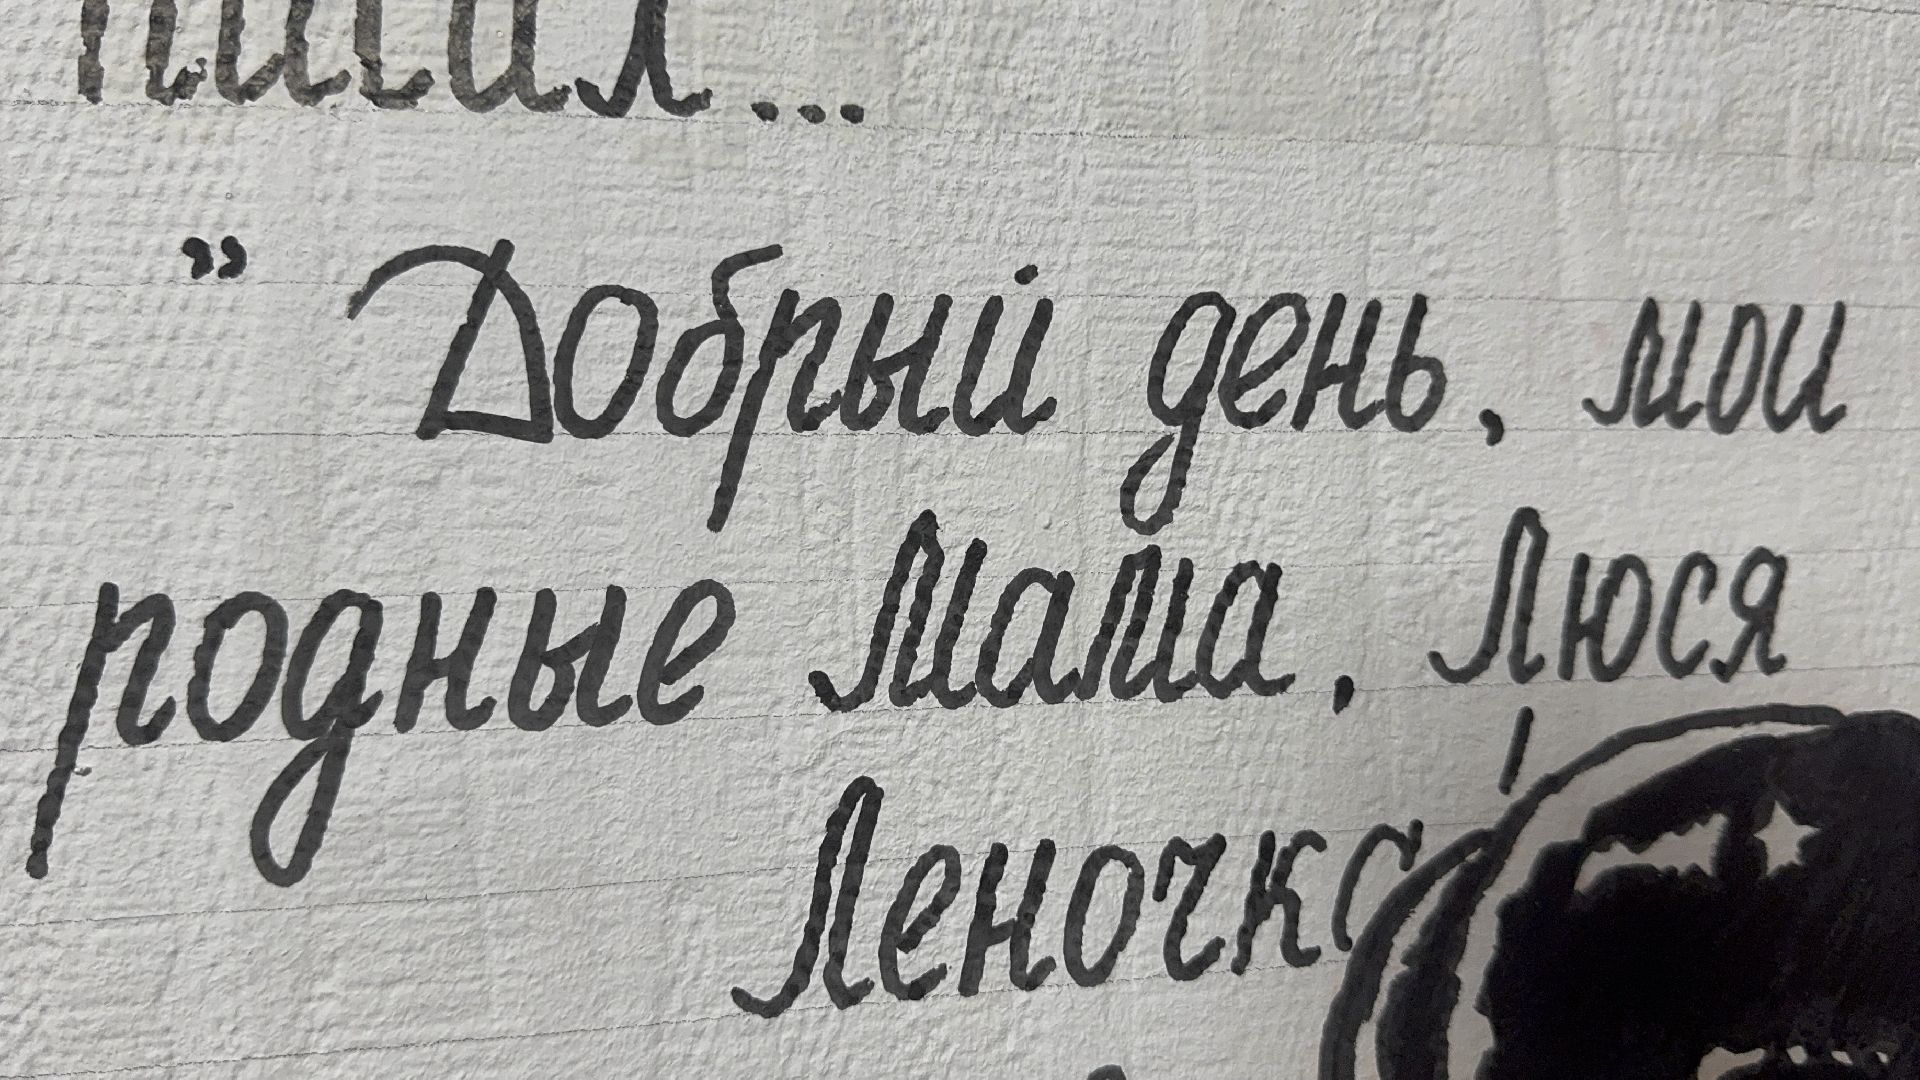 писал...
" Добрый день, мои
родные Мама, Люся
Леночка